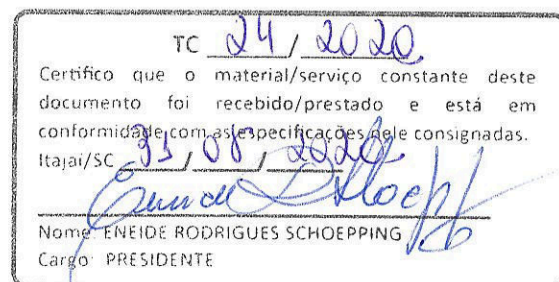 TC 24 / 2020
Certifico que o material/serviço constante deste
documento foi recebido/prestado e está em
conformidade com as especificações nele consignadas.
Itajaí/SC 31 / 08 / 2020
Nome: ENEIDE RODRIGUES SCHOEPPING
Cargo: PRESIDENTE